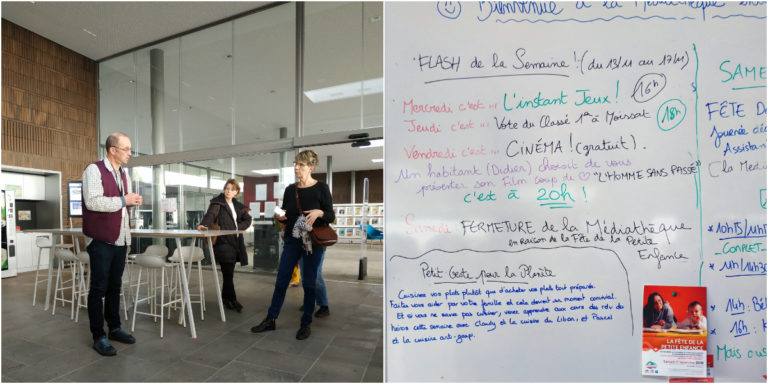 Bienvenue à la Médiathèque
FLASH de la Semaine ! (du 13/11 au 17/11)
Mercredi c'est ... L'instant Jeux ! 16h
Jeudi c'est ... Vote du Classé 1er à Moissat 18h
Vendredi c'est ... CINÉMA ! (gratuit).
Un habitant (Didier) choisit de vous
présenter son Film coup de ♡ "L'HOMME SANS PASSÉ"
c'est à 20h !
Samedi : FERMETURE de la Médiathèque
en raison de la Fête de la Petite
Enfance
Petit Geste pour la Planète
Cuisinez vos plats plutôt que d'acheter vos plats tout préparés.
Faites vous aider par votre famille et cela devient un moment convivial.
Et si vous ne savez pas cuisiner, venez apprendre aux cours des rdv du
hors cette semaine avec Claudy et la cuisine du Liban, et Pascal
et la cuisine anti-gaspi.
SAME
FÊTE D
journée dé
Assistan
(la Medi
* 10h15/11h
-COMPLET-
* 11h/11h30
* 14h : Bé
* 16h : K
Mais aus
LA FÊTE DE LA
PETITE ENFANCE